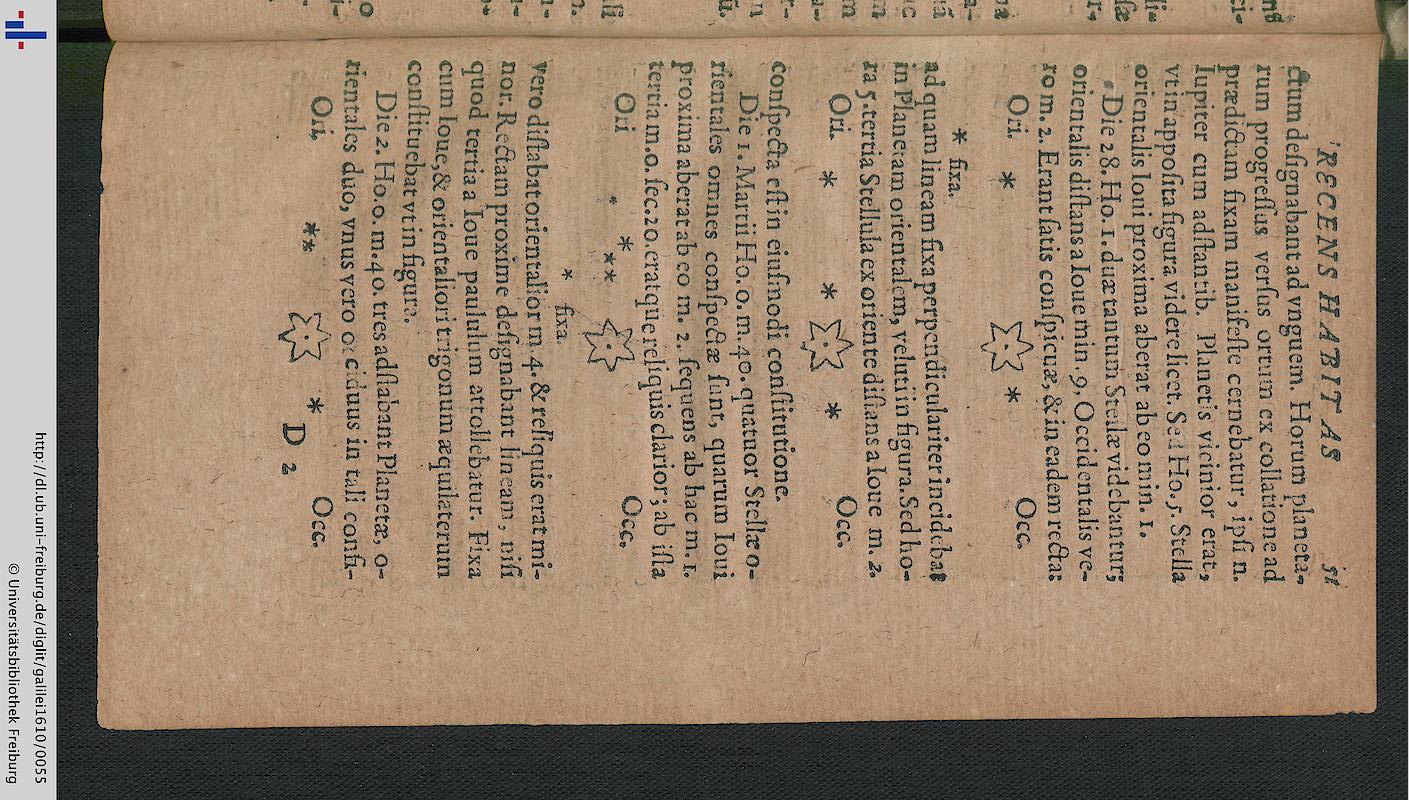 RECENS HABITAS 51
ctum deſignabant ad vnguem. Horum planeta-
rum progreſſus verſus ortum ex collatione ad
prædictam fixam manifeſte cernebatur, ipſi n.
Iupiter cum adſtantib. Planetis vicinior erat,
vt in appoſita figura videre licet. Sed Ho. 5. Stella
orientalis Ioui proxima aberat ab eo min. 1.
Die 28. Ho. 1. duæ tantum Stellæ videbantur;
orientalis diſtans a Ioue min. 9, Occidentalis ve-
ro m. 2. Erant ſatis conſpicuæ, & in eadem recta:
Ori. * * Occ.
* fixa.
ad quam lineam fixa perpendiculariter incidebat
in Planetam orientalem, veluti in figura. Sed ho-
ra 5. tertia Stellula ex oriente diſtans a Ioue m. 2.
Ori. * * * Occ.
conſpecta eſt in eiuſmodi conſtitutione.
Die 1. Martii Ho. 0. m. 40. quatuor Stellæ o-
rientales omnes conſpectæ ſunt, quarum Ioui
proxima aberat ab eo m. 2. ſequens ab hac m. 1.
tertia m. 0. ſec. 20. eratque reliquis clarior; ab iſta
Ori * * ** Occ.
* fixa.
vero diſtabat orientalior m 4. & reliquis erat mi-
nor. Rectam proxime deſignabant lineam, niſi
quod tertia a Ioue paululum attollebatur. Fixa
cum Ioue, & orientaliori trigonum æquilaterum
conſtituebat vt in figura.
Die 2. Ho. 0. m. 40. tres adſtabant Planetæ, o-
rientales duo, vnus vero occiduus in tali conſi-
Ori, ** * Occ.
D 2
http://dl.ub.uni-freiburg.de/diglit/galilei1610/0055
© Universitätsbibliothek Freiburg